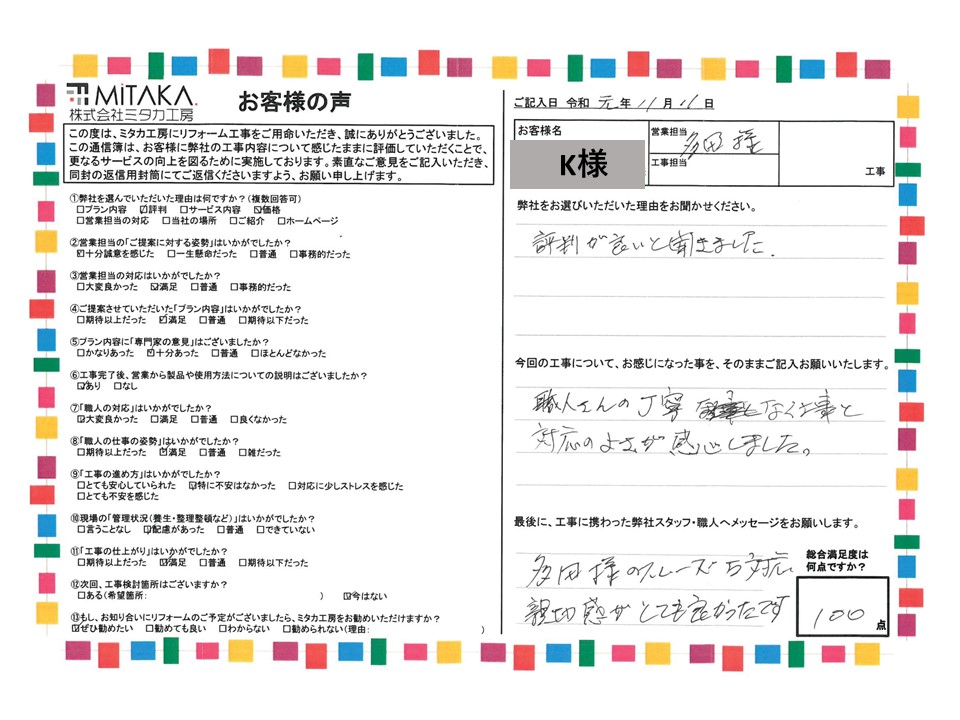 MiTAKA.
株式会社ミタカ工房
お客様の声
この度は、ミタカ工房にリフォーム工事をご用命いただき、誠にありがとうございました。
この通信簿は、お客様に弊社の工事内容について感じたままに評価していただくことで、
更なるサービスの向上を図るために実施しております。素直なご意見をご記入いただき、
同封の返信用封筒にてご返信くださいますよう、お願い申し上げます。
①弊社を選んでいただいた理由は何ですか?(複数回答可)
□プラン内容 ☑評判 □サービス内容 ☑価格
□営業担当の対応 □当社の場所 □ご紹介 □ホームページ
②営業担当の「ご提案に対する姿勢」はいかがでしたか?
☑十分誠意を感じた □一生懸命だった □普通 □事務的だった
③営業担当の対応はいかがでしたか?
□大変良かった ☑満足 □普通 □事務的だった
④ご提案させていただいた「プラン内容」はいかがでしたか?
□期待以上だった ☑満足 □普通 □期待以下だった
⑤プラン内容に「専門家の意見」はございましたか?
□かなりあった ☑十分あった □普通 □ほとんどなかった
⑥工事完了後、営業から製品や使用方法についての説明はございましたか?
☑あり □なし
⑦「職人の対応」はいかがでしたか?
☑大変良かった □満足 □普通 □良くなかった
⑧「職人の仕事の姿勢」はいかがでしたか?
□期待以上だった ☑満足 □普通 □雑だった
⑨「工事の進め方」はいかがでしたか?
□とても安心していられた ☑特に不安はなかった □対応に少しストレスを感じた
□とても不安を感じた
⑩現場の「管理状況(養生・整理整頓など)」はいかがでしたか?
□言うことなし ☑配慮があった □普通 □できていない
⑪「工事の仕上がり」はいかがでしたか?
□期待以上だった ☑満足 □普通 □期待以下だった
⑫次回、工事検討箇所はございますか?
□ある(希望箇所: ) ☑今はない
⑬もし、お知り合いにリフォームのご予定がございましたら、ミタカ工房をお勧めいただけますか?
☑ぜひ勧めたい □勧めても良い □わからない □勧められない(理由: )
ご記入日 令和 元 年 11 月 11 日
お客様名
K様
営業担当 多田 様
工事担当
工事
弊社をお選びいただいた理由をお聞かせください。
評判が良いと聞きました.
今回の工事について、お感じになった事を、そのままご記入お願いいたします。
職人さんの丁寧 なく仕事と
対応のよさが感心しました。
最後に、工事に携わった弊社スタッフ・職人へメッセージをお願いします。
多田様のスムーズな対応
親切感がとても良かったです
総合満足度は
何点ですか?
100 点